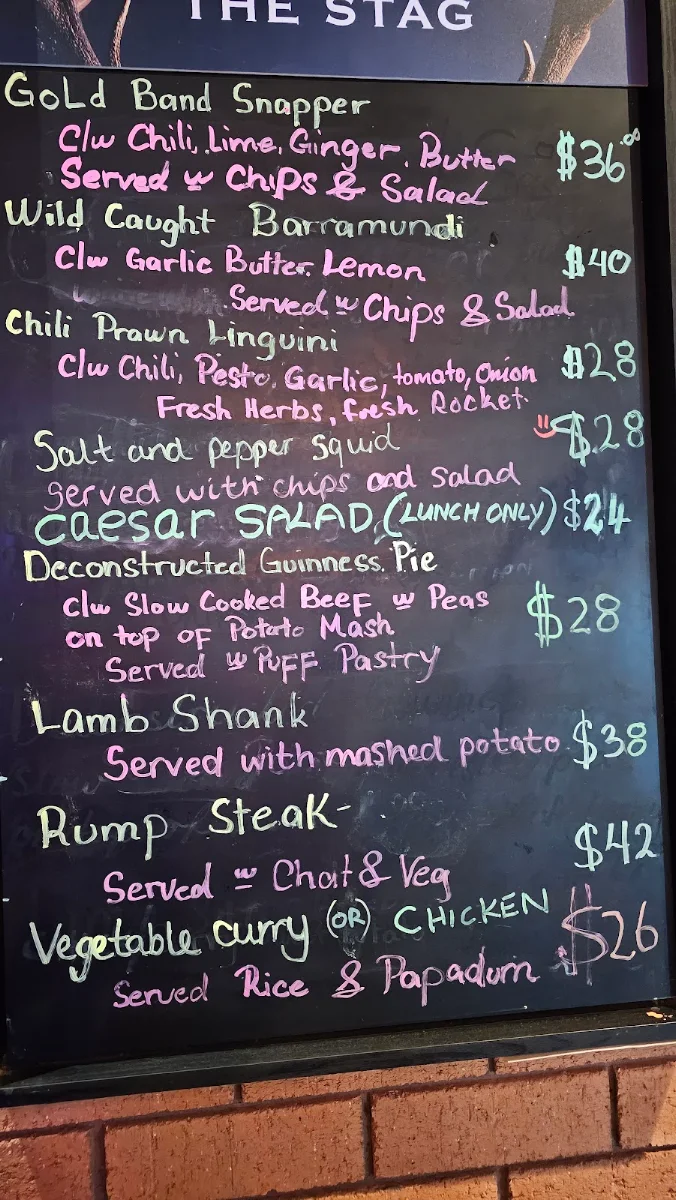 THE STAG
Gold Band Snapper
C/w Chili, Lime, Ginger, Butter $36.00
Served w Chips & Salad
Wild Caught Barramundi
C/w Garlic Butter Lemon $40
Served w Chips & Salad
Chili Prawn Linguini
C/w Chili, Pesto, Garlic, tomato, Onion $28
Fresh Herbs, fresh Rocket.
Salt and pepper squid $28
served with chips and salad
caesar SALAD (LUNCH ONLY) $24
Deconstructed Guinness Pie
C/w Slow Cooked Beef w Peas $28
on top of Potato Mash
Served w Puff Pastry
Lamb Shank
Served with mashed potato $38
Rump Steak-
$42
Served w Chat & Veg
Vegetable curry (OR) CHICKEN $26
Served Rice & Papadum